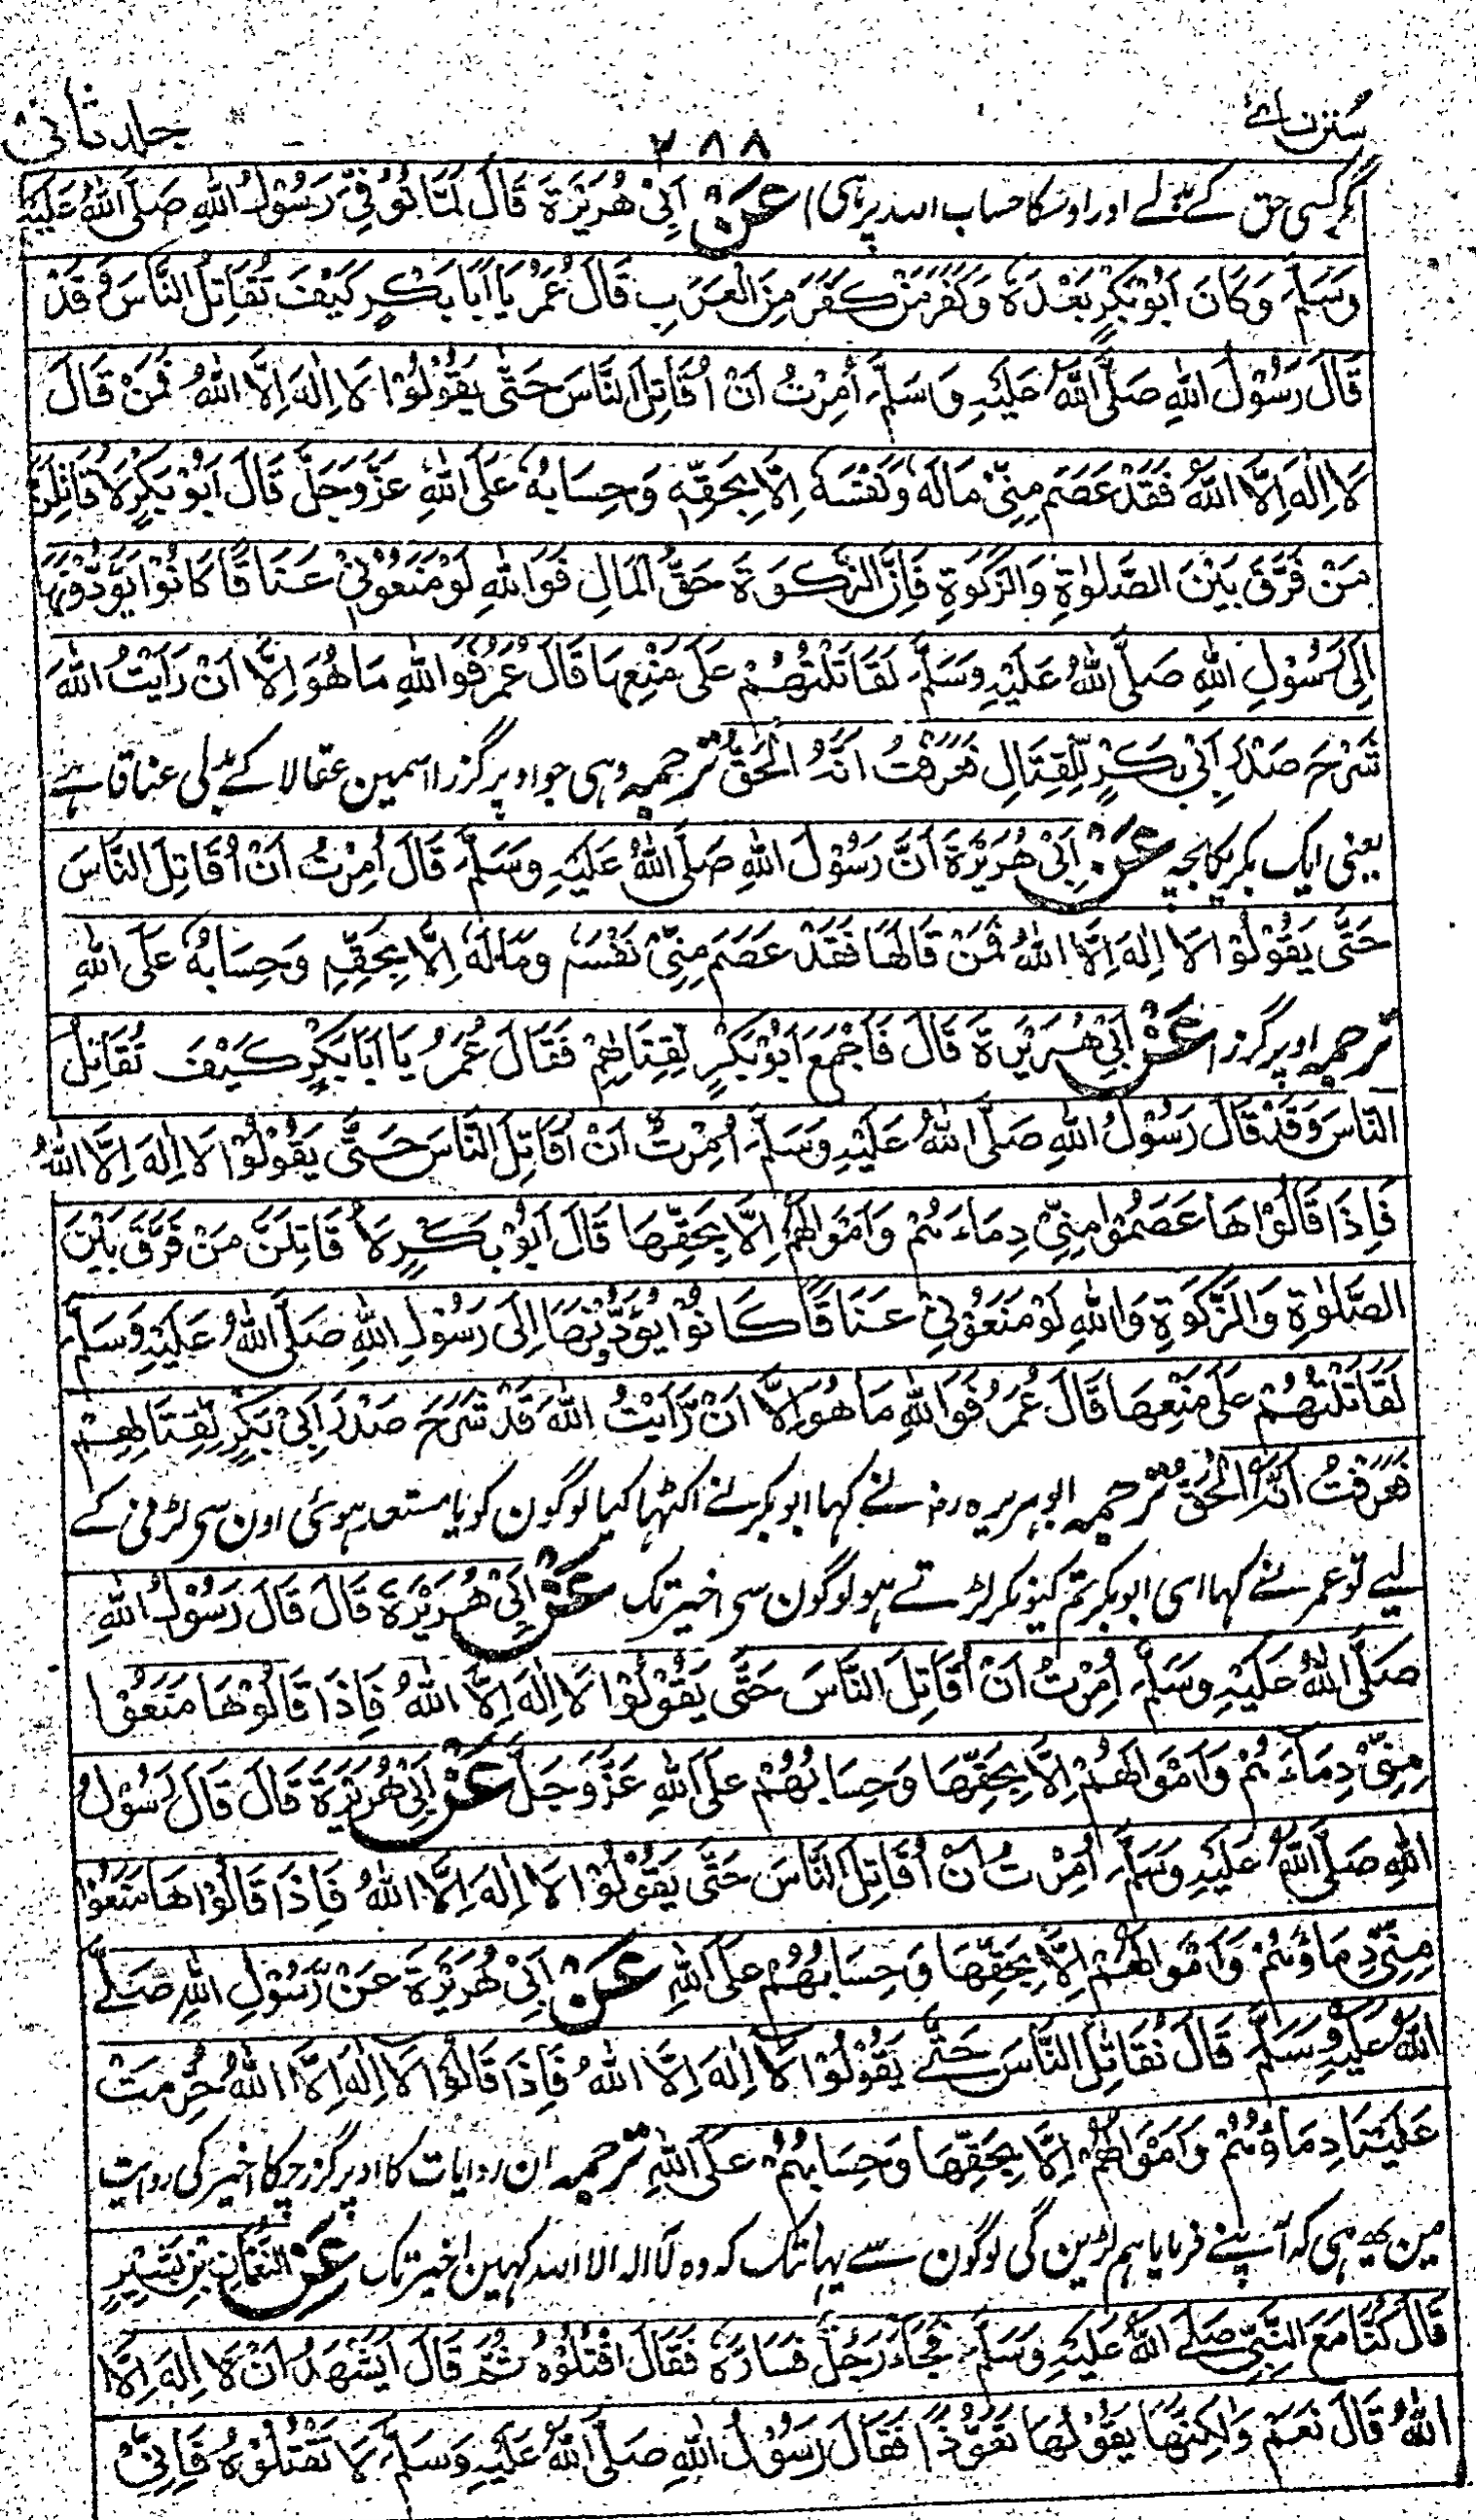 سنن نسائے
۲۸۸
جلد ثانی
مگر کسی حق کے بدلے اور اوسکا حساب اللہ پر ہی عَنْ اَبِیْ هُرَيْرَةَ قَالَ لَمَّا تُوُفِّيَ رَسُوْلُ اللهِ صَلَّى اللهُ عَلَيْهِ
وَسَلَّمَ وَكَانَ اَبُوْبَكْرٍ بَعْدَهٗ وَكَفَرَ مَنْ كَفَرَ مِنَ الْعَرَبِ قَالَ عُمَرُ يَا اَبَا بَكْرٍ كَيْفَ تُقَاتِلُ النَّاسَ وَقَدْ
قَالَ رَسُوْلُ اللهِ صَلَّى اللهُ عَلَيْهِ وَسَلَّمَ اُمِرْتُ اَنْ اُقَاتِلَ النَّاسَ حَتّٰى يَقُوْلُوْا لَا اِلٰهَ اِلَّا اللهُ فَمَنْ قَالَ
لَا اِلٰهَ اِلَّا اللهُ فَقَدْ عَصَمَ مِنِّيْ مَالَهٗ وَنَفْسَهٗ اِلَّا بِحَقِّهٖ وَحِسَابُهٗ عَلَى اللهِ عَزَّوَجَلَّ قَالَ اَبُوْبَكْرٍ لَاُقَاتِلَنَّ
مَنْ فَرَّقَ بَيْنَ الصَّلٰوةِ وَالزَّكٰوةِ فَاِنَّ الزَّكٰوةَ حَقُّ الْمَالِ فَوَاللهِ لَوْ مَنَعُوْنِيْ عَنَاقًا كَانُوْا يُؤَدُّوْنَهَا
اِلٰى رَسُوْلِ اللهِ صَلَّى اللهُ عَلَيْهِ وَسَلَّمَ لَقَاتَلْتُهُمْ عَلٰى مَنْعِهَا قَالَ عُمَرُ فَوَاللهِ مَا هُوَ اِلَّا اَنْ رَاَيْتُ اللهَ
شَرَحَ صَدْرَ اَبِيْ بَكْرٍ لِلْقِتَالِ فَعَرَفْتُ اَنَّهُ الْحَقُّ ترجمہ وہی جو اوپر گزرا اسمین عقالا کے بدلی عناقا ہے
یعنی ایک بکریکا بچہ عَنْ اَبِيْ هُرَيْرَةَ اَنَّ رَسُوْلَ اللهِ صَلَّى اللهُ عَلَيْهِ وَسَلَّمَ قَالَ اُمِرْتُ اَنْ اُقَاتِلَ النَّاسَ
حَتّٰى يَقُوْلُوْا لَا اِلٰهَ اِلَّا اللهُ فَمَنْ قَالَهَا فَقَدْ عَصَمَ مِنِّيْ نَفْسَهٗ وَمَالَهٗ اِلَّا بِحَقِّهٖ وَحِسَابُهٗ عَلَى اللهِ
ترجمہ اوپر گزرا عَنْ اَبِيْ هُرَيْرَةَ قَالَ فَاَجْمَعَ اَبُوْبَكْرٍ لِقِتَالِهِمْ فَقَالَ عُمَرُ يَا اَبَا بَكْرٍ كَيْفَ تُقَاتِلُ
النَّاسَ وَقَدْ قَالَ رَسُوْلُ اللهِ صَلَّى اللهُ عَلَيْهِ وَسَلَّمَ اُمِرْتُ اَنْ اُقَاتِلَ النَّاسَ حَتّٰى يَقُوْلُوْا لَا اِلٰهَ اِلَّا اللهُ
فَاِذَا قَالُوْهَا عَصَمُوْا مِنِّيْ دِمَاءَهُمْ وَاَمْوَالَهُمْ اِلَّا بِحَقِّهَا قَالَ اَبُوْبَكْرٍ لَاُقَاتِلَنَّ مَنْ فَرَّقَ بَيْنَ
الصَّلٰوةِ وَالزَّكٰوةِ وَاللهِ لَوْ مَنَعُوْنِيْ عَنَاقًا كَانُوْا يُؤَدُّوْنَهَا اِلٰى رَسُوْلِ اللهِ صَلَّى اللهُ عَلَيْهِ وَسَلَّمَ
لَقَاتَلْتُهُمْ عَلٰى مَنْعِهَا قَالَ عُمَرُ فَوَاللهِ مَا هُوَ اِلَّا اَنْ رَّاَيْتُ اللهَ قَدْ شَرَحَ صَدْرَ اَبِيْ بَكْرٍ لِّقِتَالِهِمْ
فَعَرَفْتُ اَنَّهُ الْحَقُّ ترجمہ ابو ہریرہ رضہ نے کہا ابو بکر نے اکٹھا کیا لوگون کو یا مستعد ہوئی اون سی لڑنی کے
لیے تو عمر نے کہا ای ابوبکر تم کیونکر لڑتے ہو لوگون سی اخیر تک عَنْ اَبِيْ هُرَيْرَةَ قَالَ قَالَ رَسُوْلُ اللهِ
صَلَّى اللهُ عَلَيْهِ وَسَلَّمَ اُمِرْتُ اَنْ اُقَاتِلَ النَّاسَ حَتّٰى يَقُوْلُوْا لَا اِلٰهَ اِلَّا اللهُ فَاِذَا قَالُوْهَا مَنَعُوْا
مِنِّيْ دِمَاءَهُمْ وَاَمْوَالَهُمْ اِلَّا بِحَقِّهَا وَحِسَابُهُمْ عَلَى اللهِ عَزَّوَجَلَّ عَنْ اَبِيْ هُرَيْرَةَ قَالَ قَالَ رَسُوْلُ
اللهِ صَلَّى اللهُ عَلَيْهِ وَسَلَّمَ اُمِرْتُ اَنْ اُقَاتِلَ النَّاسَ حَتّٰى يَقُوْلُوْا لَا اِلٰهَ اِلَّا اللهُ فَاِذَا قَالُوْهَا مَنَعُوْا
مِنِّيْ دِمَاؤَهُمْ وَاَمْوَالَهُمْ اِلَّا بِحَقِّهَا وَحِسَابُهُمْ عَلَى اللهِ عَنْ اَبِيْ هُرَيْرَةَ عَنْ رَّسُوْلِ اللهِ صَلَّے
اللهُ عَلَيْهِ وَسَلَّمَ قَالَ نُقَاتِلُ النَّاسَ حَتّٰے يَقُوْلُوْا لَا اِلٰهَ اِلَّا اللهُ فَاِذَا قَالُوْا لَا اِلٰهَ اِلَّا اللهُ حُرِّمَتْ
عَلَيْنَا دِمَاؤُهُمْ وَاَمْوَالُهُمْ اِلَّا بِحَقِّهَا وَحِسَابُهُمْ عَلَى اللهِ ترجمہ ان روایات کا اوپر گزر چکا اخیر کی روایت
مین یہ ہی کہ آپنے فرمایا ہم لڑین گی لوگون سے یہانتک کہ وہ لا الہ الا اللہ کہین اخیر تک عَنِ النُّعْمَانِ بْنِ بَشِيْرٍ
قَالَ كُنَّا مَعَ النَّبِيِّ صَلَّے اللهُ عَلَيْهِ وَسَلَّمَ فَجَاءَ رَجُلٌ فَسَارَّهٗ فَقَالَ اقْتُلُوْهُ ثُمَّ قَالَ اَيَشْهَدُ اَنْ لَا اِلٰهَ اِلَّا
اللهُ قَالَ نَعَمْ وَلٰكِنَّهَا يَقُوْلُهَا تَعَوُّذًا فَقَالَ رَسُوْلُ اللهِ صَلَّى اللهُ عَلَيْهِ وَسَلَّمَ لَا تَقْتُلُوْهُ فَاِنِّيْ